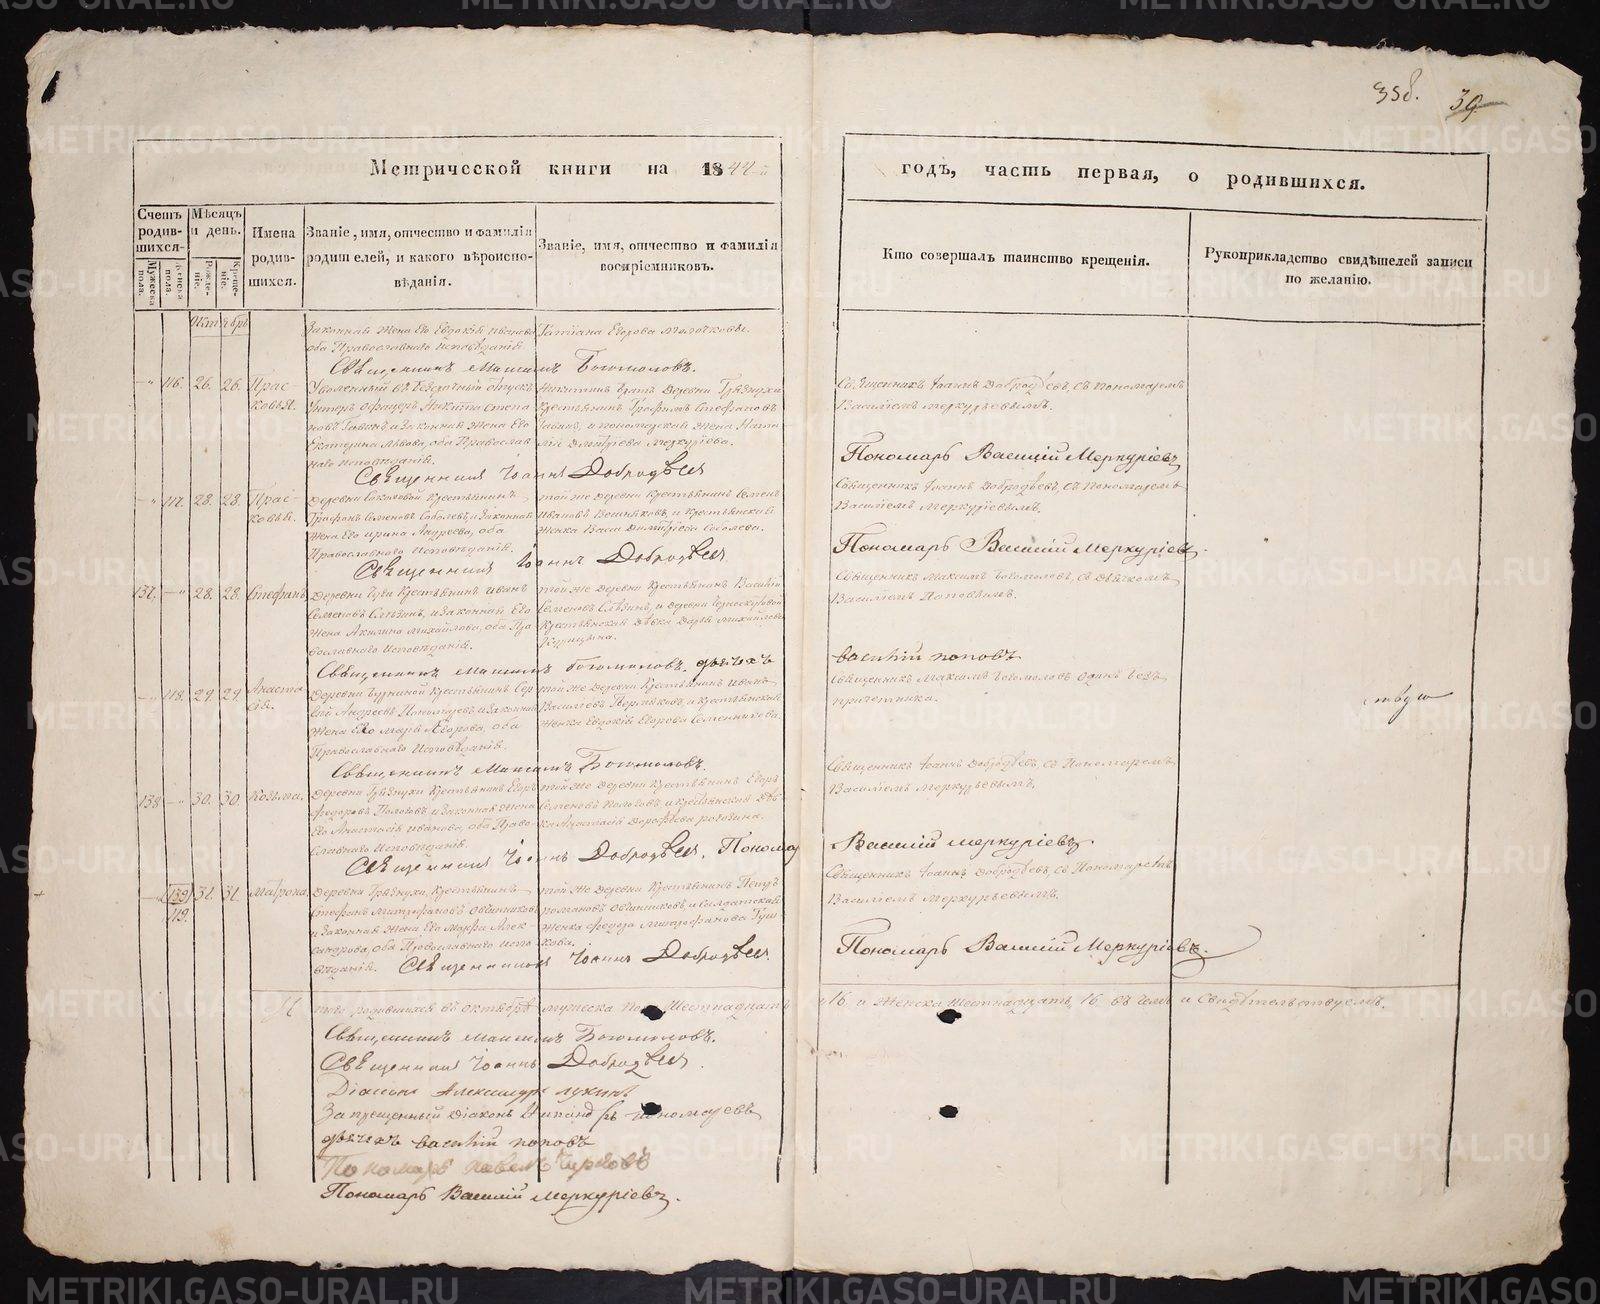 35б. 39
Метрической книги на 1844 годъ, часть первая, о родившихся.
Счетъ родившихся.
Мужеска пола.
Женска пола.
Мѣсяцъ и день.
Рожденіе.
Крещеніе.
Имена родившихся.
Званіе, имя, отчество и фамилія родителей, и какого вѣроисповѣданія.
Званіе, имя, отчество и фамилія воспріемниковъ.
Кто совершалъ таинство крещенія.
Рукоприкладство свидѣтелей записи по желанію.
Октябрь
Законная жена Его Евдокія Иванова
оба Православнаго Исповѣданія
Татіана Егорова Молочкова.
Священникъ Максимъ Богомоловъ.
116. 26. 26.
Прасковья.
Уволенный въ безсрочный отпускъ
Унтеръ офицеръ Никита Степановъ
и Законная жена Его
Екатерина Львова, оба Православнаго исповѣданія.
Никитинъ братъ деревни Грязнухи
Крестьянинъ Трофимъ Стефановъ
и пономарская жена Наталія Дмитріева Меркуріева.
Священникъ Іоаннъ Добродѣевъ, съ Пономаремъ
Василіемъ Меркурьевымъ.
Священникъ Іоаннъ Добродѣевъ
Пономарь Василій Меркуріевъ
117. 28. 28.
Прасковья.
Крестьянинъ
Трофимъ Семеновъ Соболевъ, и Законная
жена Его Ирина Андреева, оба
Православнаго Исповѣданія.
той же деревни Крестьянинъ Семенъ
Ивановъ и Крестьянская
женка Васса Димитріева Соболева.
Священникъ Іоаннъ Добродѣевъ, съ Пономаремъ
Василіемъ Меркуріевымъ.
Священникъ Іоаннъ Добродѣевъ
Пономарь Василій Меркуріевъ.
137. 28. 28.
Стефанъ
Крестьянинъ Иванъ
Семеновъ и Законная Его
жена Акилина Михайлова, оба Православнаго Исповѣданія.
той же деревни Крестьянинъ Василій
Семеновъ и деревни
Крестьянская дѣвка Дарья Михайлова
Курицына.
Священникъ Максимъ Богомоловъ, съ Дьячкомъ
Василіемъ Поповымъ.
Священникъ Максимъ Богомоловъ. дьячекъ
василій поповъ
118. 29. 29.
Анастасія.
Крестьянинъ Сергій Андреевъ Пономаревъ и Законная
жена Его Марья Егорова, оба
Православнаго Исповѣданія.
той же Деревни Крестьянинъ Иванъ
Василіевъ и Крестьянская
женка Евдокія Егорова
Священникъ Максимъ Богомоловъ одинъ безъ
причетника.
Священникъ Максимъ Богомоловъ.
138 30. 30
Козьма.
Деревни Грязнухи Крестьянинъ Егоръ
Федоровъ и Законная жена
Его Анастасія Иванова, оба Православнаго Исповѣданія.
той же деревни Крестьянинъ Егоръ
Семеновъ и Крестьянская дѣвка Анастасія Дорофѣева
Священникъ Іоаннъ Добродѣевъ, съ Пономаремъ
Василіемъ Меркурьевымъ.
Священникъ Іоаннъ Добродѣевъ. Пономарь
Василій Меркуріевъ.
139
119. 31. 31.
Матрона.
Деревни Грязнухи, Крестьянинъ
Стефанъ Митрофановъ Овчинниковъ
и Законная жена Его Марфа Александрова, оба Православнаго Исповѣданія.
той же деревни Крестьянинъ Петръ
Романовъ Овчинниковъ, и Солдатская
женка Федора Митрофанова
Священникъ Іоаннъ Добродѣевъ, съ Пономаремъ
Василіемъ Меркурьевымъ.
Священникъ Іоаннъ Добродѣевъ.
Пономарь Василій Меркуріевъ.
Итого родившихся въ октябрѣ мужеска пола Шестнадцать 16. и женска шестнадцать, 16. въ чемъ и Свидѣтельствуемъ.
Священникъ Максимъ Богомоловъ.
Священникъ Іоаннъ Добродѣевъ.
Діаконъ Александръ Лукинъ
Запрещенный Діаконъ Никандръ Пономаревъ
дьячекъ василій поповъ
Пономарь Павелъ Чирковъ
Пономарь Василій Меркуріевъ.
METRIKI.GASO-URAL.RU